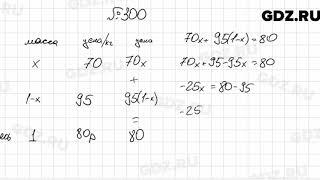 GDZ.RU
№300
масса цена/кг цена
x 70 70x
1-x 95 95(1-x)
=
есь 1 80р 80
70x+95(1-x)=80
70x+95-95x=80
-25x=80-95
-25